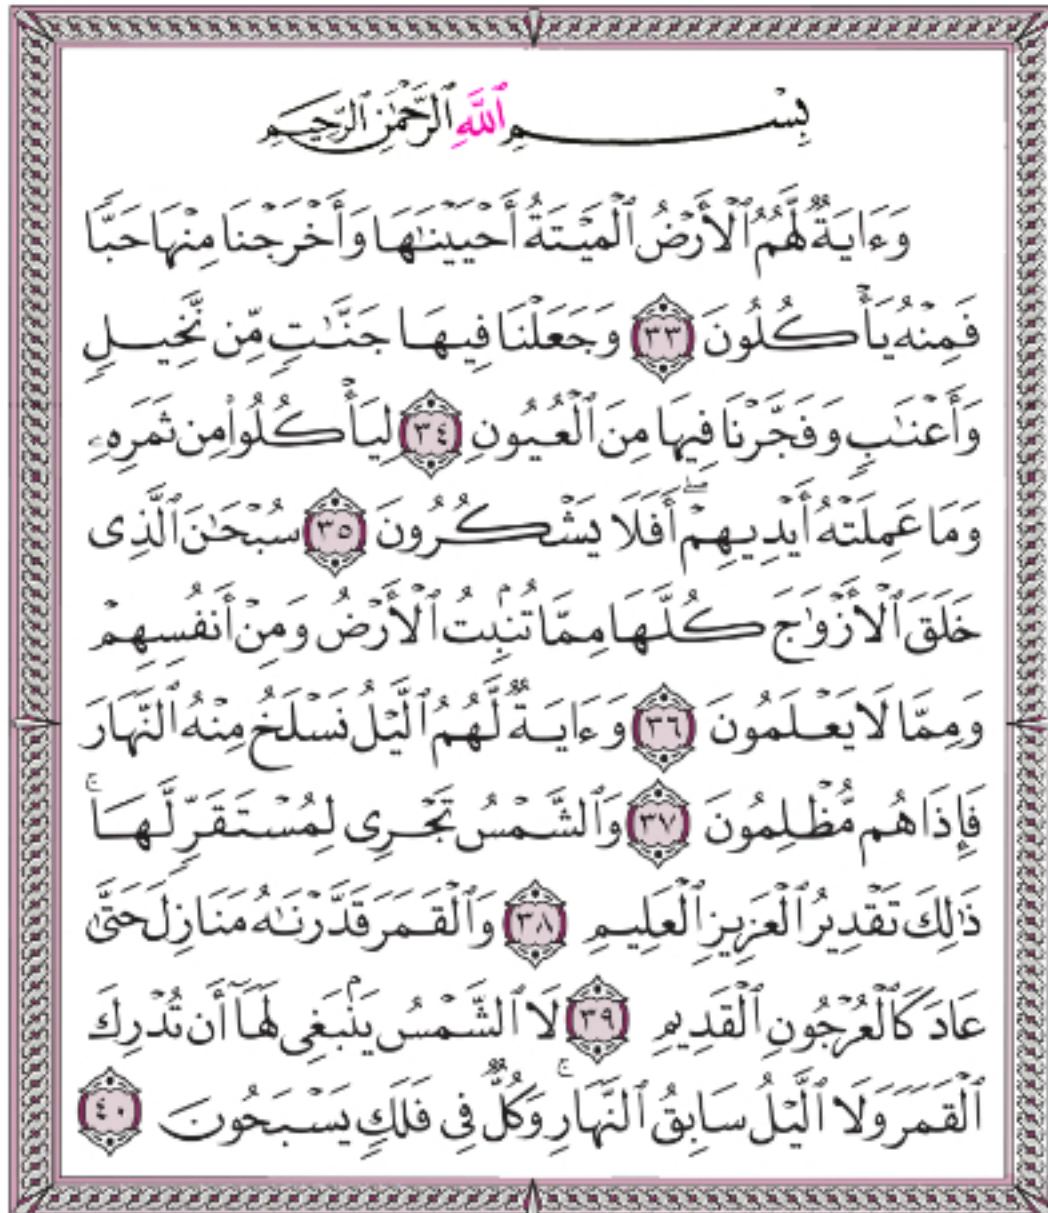 بِسْمِ ٱللَّهِ ٱلرَّحْمَٰنِ ٱلرَّحِيمِ
وَءَايَةٌ لَّهُمُ ٱلْأَرْضُ ٱلْمَيْتَةُ أَحْيَيْنَٰهَا وَأَخْرَجْنَا مِنْهَا حَبًّا
فَمِنْهُ يَأْكُلُونَ ٣٣ وَجَعَلْنَا فِيهَا جَنَّٰتٍ مِّن نَّخِيلٍ
وَأَعْنَٰبٍ وَفَجَّرْنَا فِيهَا مِنَ ٱلْعُيُونِ ٣٤ لِيَأْكُلُوا۟ مِن ثَمَرِهِۦ
وَمَا عَمِلَتْهُ أَيْدِيهِمْ ۖ أَفَلَا يَشْكُرُونَ ٣٥ سُبْحَٰنَ ٱلَّذِى
خَلَقَ ٱلْأَزْوَٰجَ كُلَّهَا مِمَّا تُنۢبِتُ ٱلْأَرْضُ وَمِنْ أَنفُسِهِمْ
وَمِمَّا لَا يَعْلَمُونَ ٣٦ وَءَايَةٌ لَّهُمُ ٱلَّيْلُ نَسْلَخُ مِنْهُ ٱلنَّهَارَ
فَإِذَا هُم مُّظْلِمُونَ ٣٧ وَٱلشَّمْسُ تَجْرِى لِمُسْتَقَرٍّ لَّهَا ۚ
ذَٰلِكَ تَقْدِيرُ ٱلْعَزِيزِ ٱلْعَلِيمِ ٣٨ وَٱلْقَمَرَ قَدَّرْنَٰهُ مَنَازِلَ حَتَّىٰ
عَادَ كَٱلْعُرْجُونِ ٱلْقَدِيمِ ٣٩ لَا ٱلشَّمْسُ يَنۢبَغِى لَهَآ أَن تُدْرِكَ
ٱلْقَمَرَ وَلَا ٱلَّيْلُ سَابِقُ ٱلنَّهَارِ ۚ وَكُلٌّ فِى فَلَكٍ يَسْبَحُونَ ٤٠